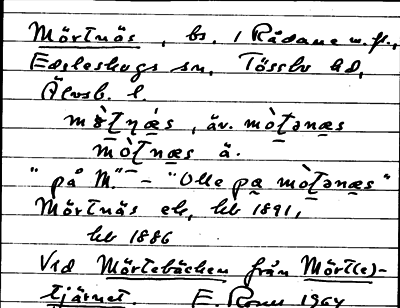 Mörtnäs, bs. i Rådane w. fl.,
Edsleskogs sn, Tössbo hd,
Älvsb. l.
mö̀t̠næ̠s, äv. mò̠t̠ənæ̠s
mò̠t̠næ̠s ä.
"på M." – "Olle pa̠ mò̠t̠ənæ̠s"
Mörtnäs ek, hb 1891,
hb 1886
Vid Mörtebäcken från Mört(e)-
tjärnet. E. 1964